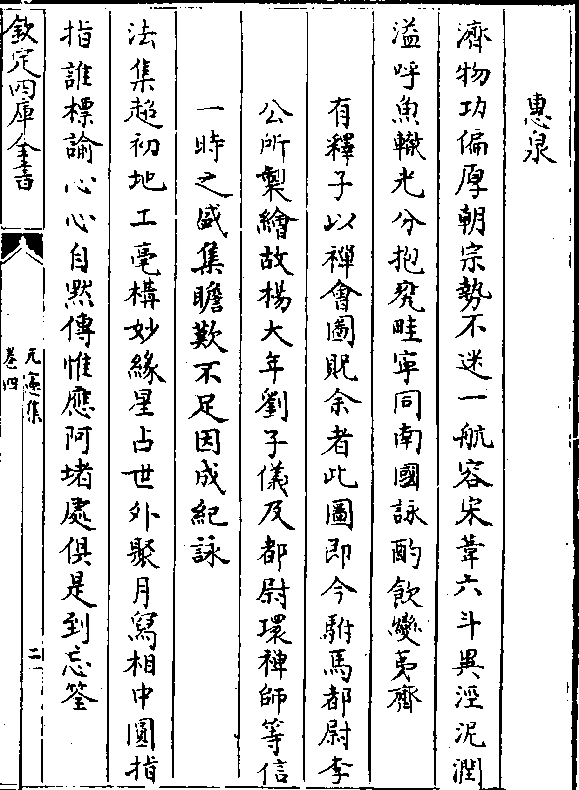 惠泉
濟物功偏厚朝宗勢不迷一航容宋葦六斗異涇泥潤
溢呼魚轍光分抱甕畦寜同南國詠酌飲變夷齊
有釋子以禪會圖貺余者此圖即今駙馬都尉李
公所製繪故楊大年劉子儀及都尉環禅師等信
一時之盛集瞻歎不足因成紀詠
法集超初地工毫構妙緣星占世外聚月寫相中圓指
指誰標諭心心自黙傳惟應阿堵處俱是到忘筌
欽定四庫全書
元憲集
卷四
二